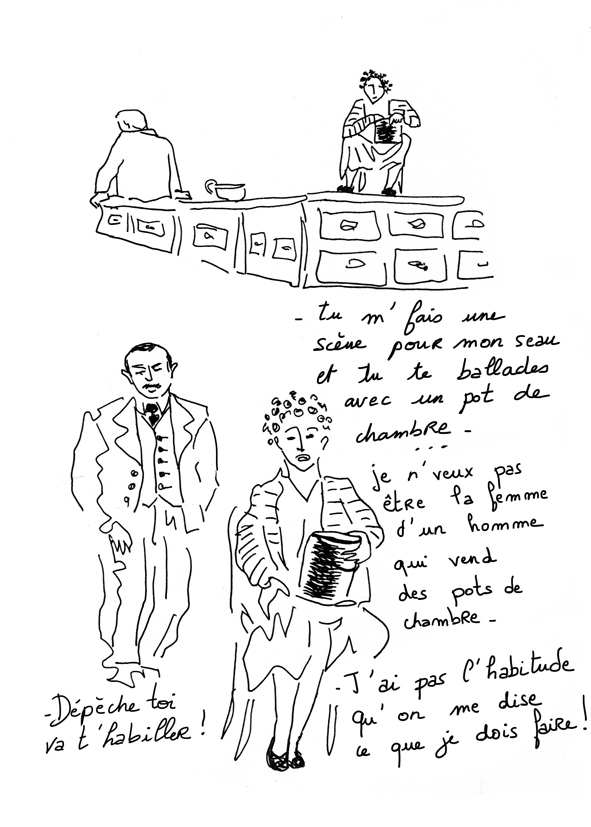 - tu m'fais une
scène pour mon seau
et tu te ballades
avec un pot de
chambre -
...
je n'veux pas
être la femme
d'un homme
qui vend
des pots de
chambre -
- Dépêche toi
va t'habiller !
- J'ai pas l'habitude
qu'on me dise
ce que je dois faire !